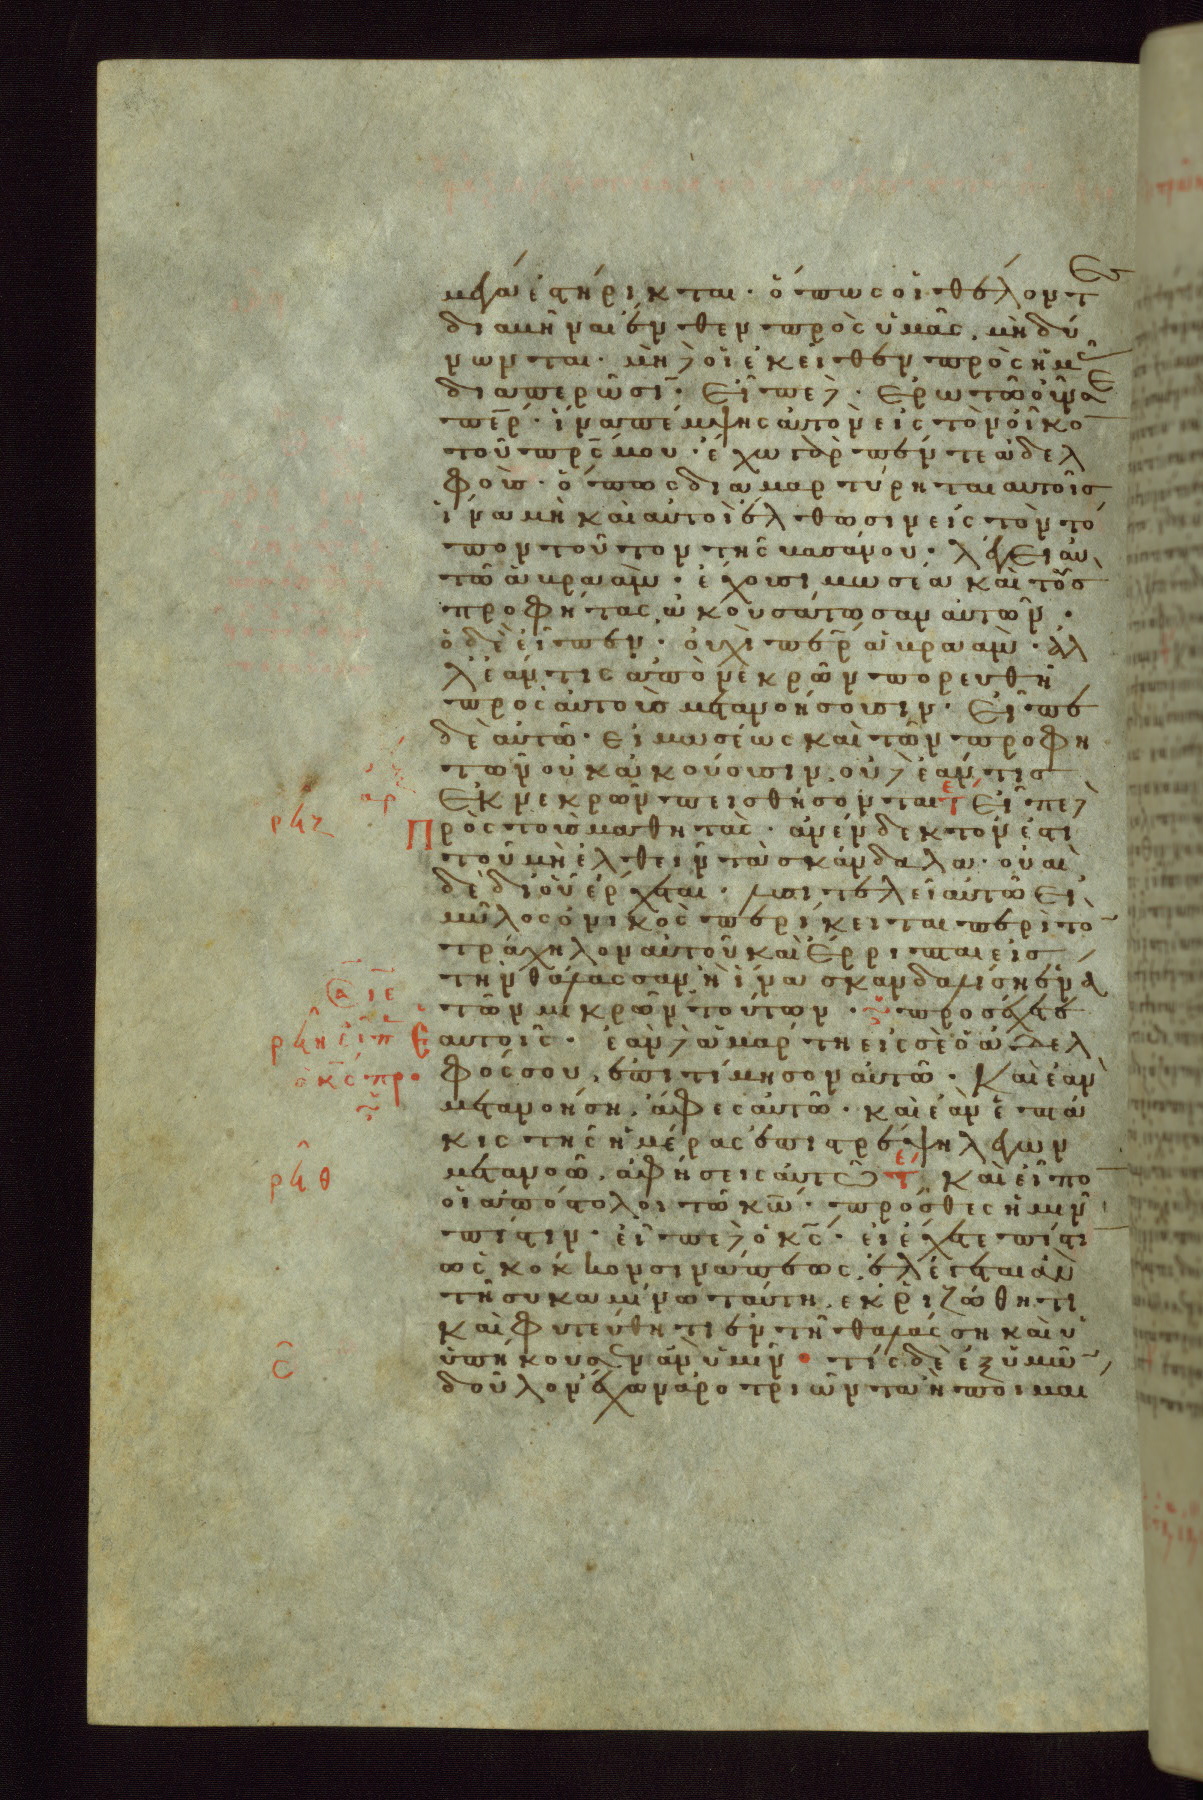 μέγα ἐστήρικται· ὅπως οἱ θέλοντες
διαβῆναι ἔνθεν πρὸς ὑμᾶς, μὴ δύ
νωνται· μὴ δὲ οἱ ἐκεῖθεν πρὸς ἡμᾶς
διαπερῶσιν· Εἶπε δὲ· Ἐρωτῶ οὖν σε
περ· ἵνα πέμψης αὐτὸν εἰς τὸν οἶκον
τοῦ πρς μου· ἔχω γὰρ πέντε ἀδελ
φούς· ὅπως διαμαρτύρηται αὐτοῖς
ἵνα μὴ καὶ αὐτοὶ ἔλθωσιν εἰς τὸν τό
πον τοῦτον τῆς βασάνου· λέγει αὐ
τῶ ἀβραάμ· ἔχουσι μωσέα καὶ τοὺς
προφήτας, ἀκουσάτωσαν αὐτῶν·
ὁ δὲ εἶπεν· οὐχὶ περ ἀβραάμ· ἀλ
λ' ἐάν τις ἀπὸ νεκρῶν πορευθῆ
πρὸς αὐτοὺς μετανοήσουσιν· Εἶπε
δὲ αὐτῶ· εἰ μωσέως καὶ τῶν προφη
τῶν οὐκ ἀκούουσιν, οὐδὲ ἐάν τις
ἐκ νεκρῶν πεισθήσονται τε Εἶπε δὲ
αρ
ρϟζ Πρὸς τοὺς μαθητάς· ἀνένδεκτόν ἐστι
τοῦ μὴ ἐλθεῖν τὰ σκάνδαλα· οὐαὶ
δὲ δι' οὗ ἔρχεται· λυσιτελεῖ αὐτῶ εἰ
μύλος ὀνικὸς περίκειται περὶ τὸν
τράχηλον αὐτοῦ καὶ ἔρριπται εἰς
τὴν θάλασσαν ἢ ἵνα σκανδαλίση ἕνα
τῶν μικρῶν τούτων· προσέχετε
ρϟη εἶπ Ἑαυτοῖς· ἐὰν δὲ ἁμάρτη εἰς σὲ ὁ ἀδελ
ὁ κς προ φός σου, ἐπιτίμησον αὐτῶ· Καὶ ἐὰν
μετανοήση, ἄφες αὐτῶ· καὶ ἐὰν ἑπτά
κις τῆς ἡμέρας ἐπιστρέψη λέγων
ρϟθ μετανοῶ, ἀφήσεις αὐτῶ τε, Καὶ εἶπον
οἱ ἀπόστολοι τῶ κω· πρόσθες ἡμῖν
πίστιν· εἶπε δὲ ὁ κς· εἰ ἔχετε πίστιν
ὡς κόκκον σινάπεως, ἐλέγεται ἂν
τῆ συκαμίνω ταύτη, ἐκριζώθητι
καὶ φυτεύθητι ἐν τῆ θαλάσση καὶ ὑ
σ ὑπήκουσεν ἂν ὑμῖν· τίς δὲ ἐξ ὑμῶν
δοῦλον ἔχων ἀροτριῶντα ἢ ποιμαί